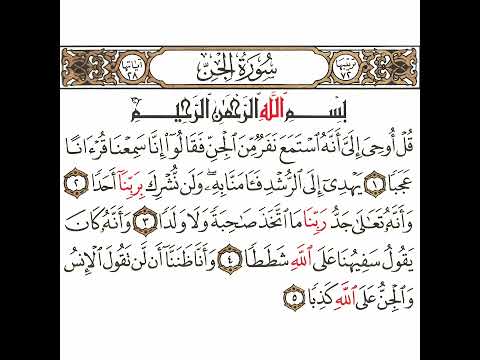 ترتيبها ٧٢
سُورَةُ الجِنِّ
آياتها ٢٨
بِسْمِ اللَّهِ الرَّحْمَٰنِ الرَّحِيمِ
قُلْ أُوحِيَ إِلَيَّ أَنَّهُ اسْتَمَعَ نَفَرٌ مِّنَ الْجِنِّ فَقَالُوا إِنَّا سَمِعْنَا قُرْءَانًا
عَجَبًا ١ يَهْدِي إِلَى الرُّشْدِ فَـَٔامَنَّا بِهِ وَلَن نُّشْرِكَ بِرَبِّنَا أَحَدًا ٢
وَأَنَّهُ تَعَالَىٰ جَدُّ رَبِّنَا مَا اتَّخَذَ صَاحِبَةً وَلَا وَلَدًا ٣ وَأَنَّهُ كَانَ
يَقُولُ سَفِيهُنَا عَلَى اللَّهِ شَطَطًا ٤ وَأَنَّا ظَنَنَّا أَن لَّن تَقُولَ الْإِنسُ
وَالْجِنُّ عَلَى اللَّهِ كَذِبًا ٥